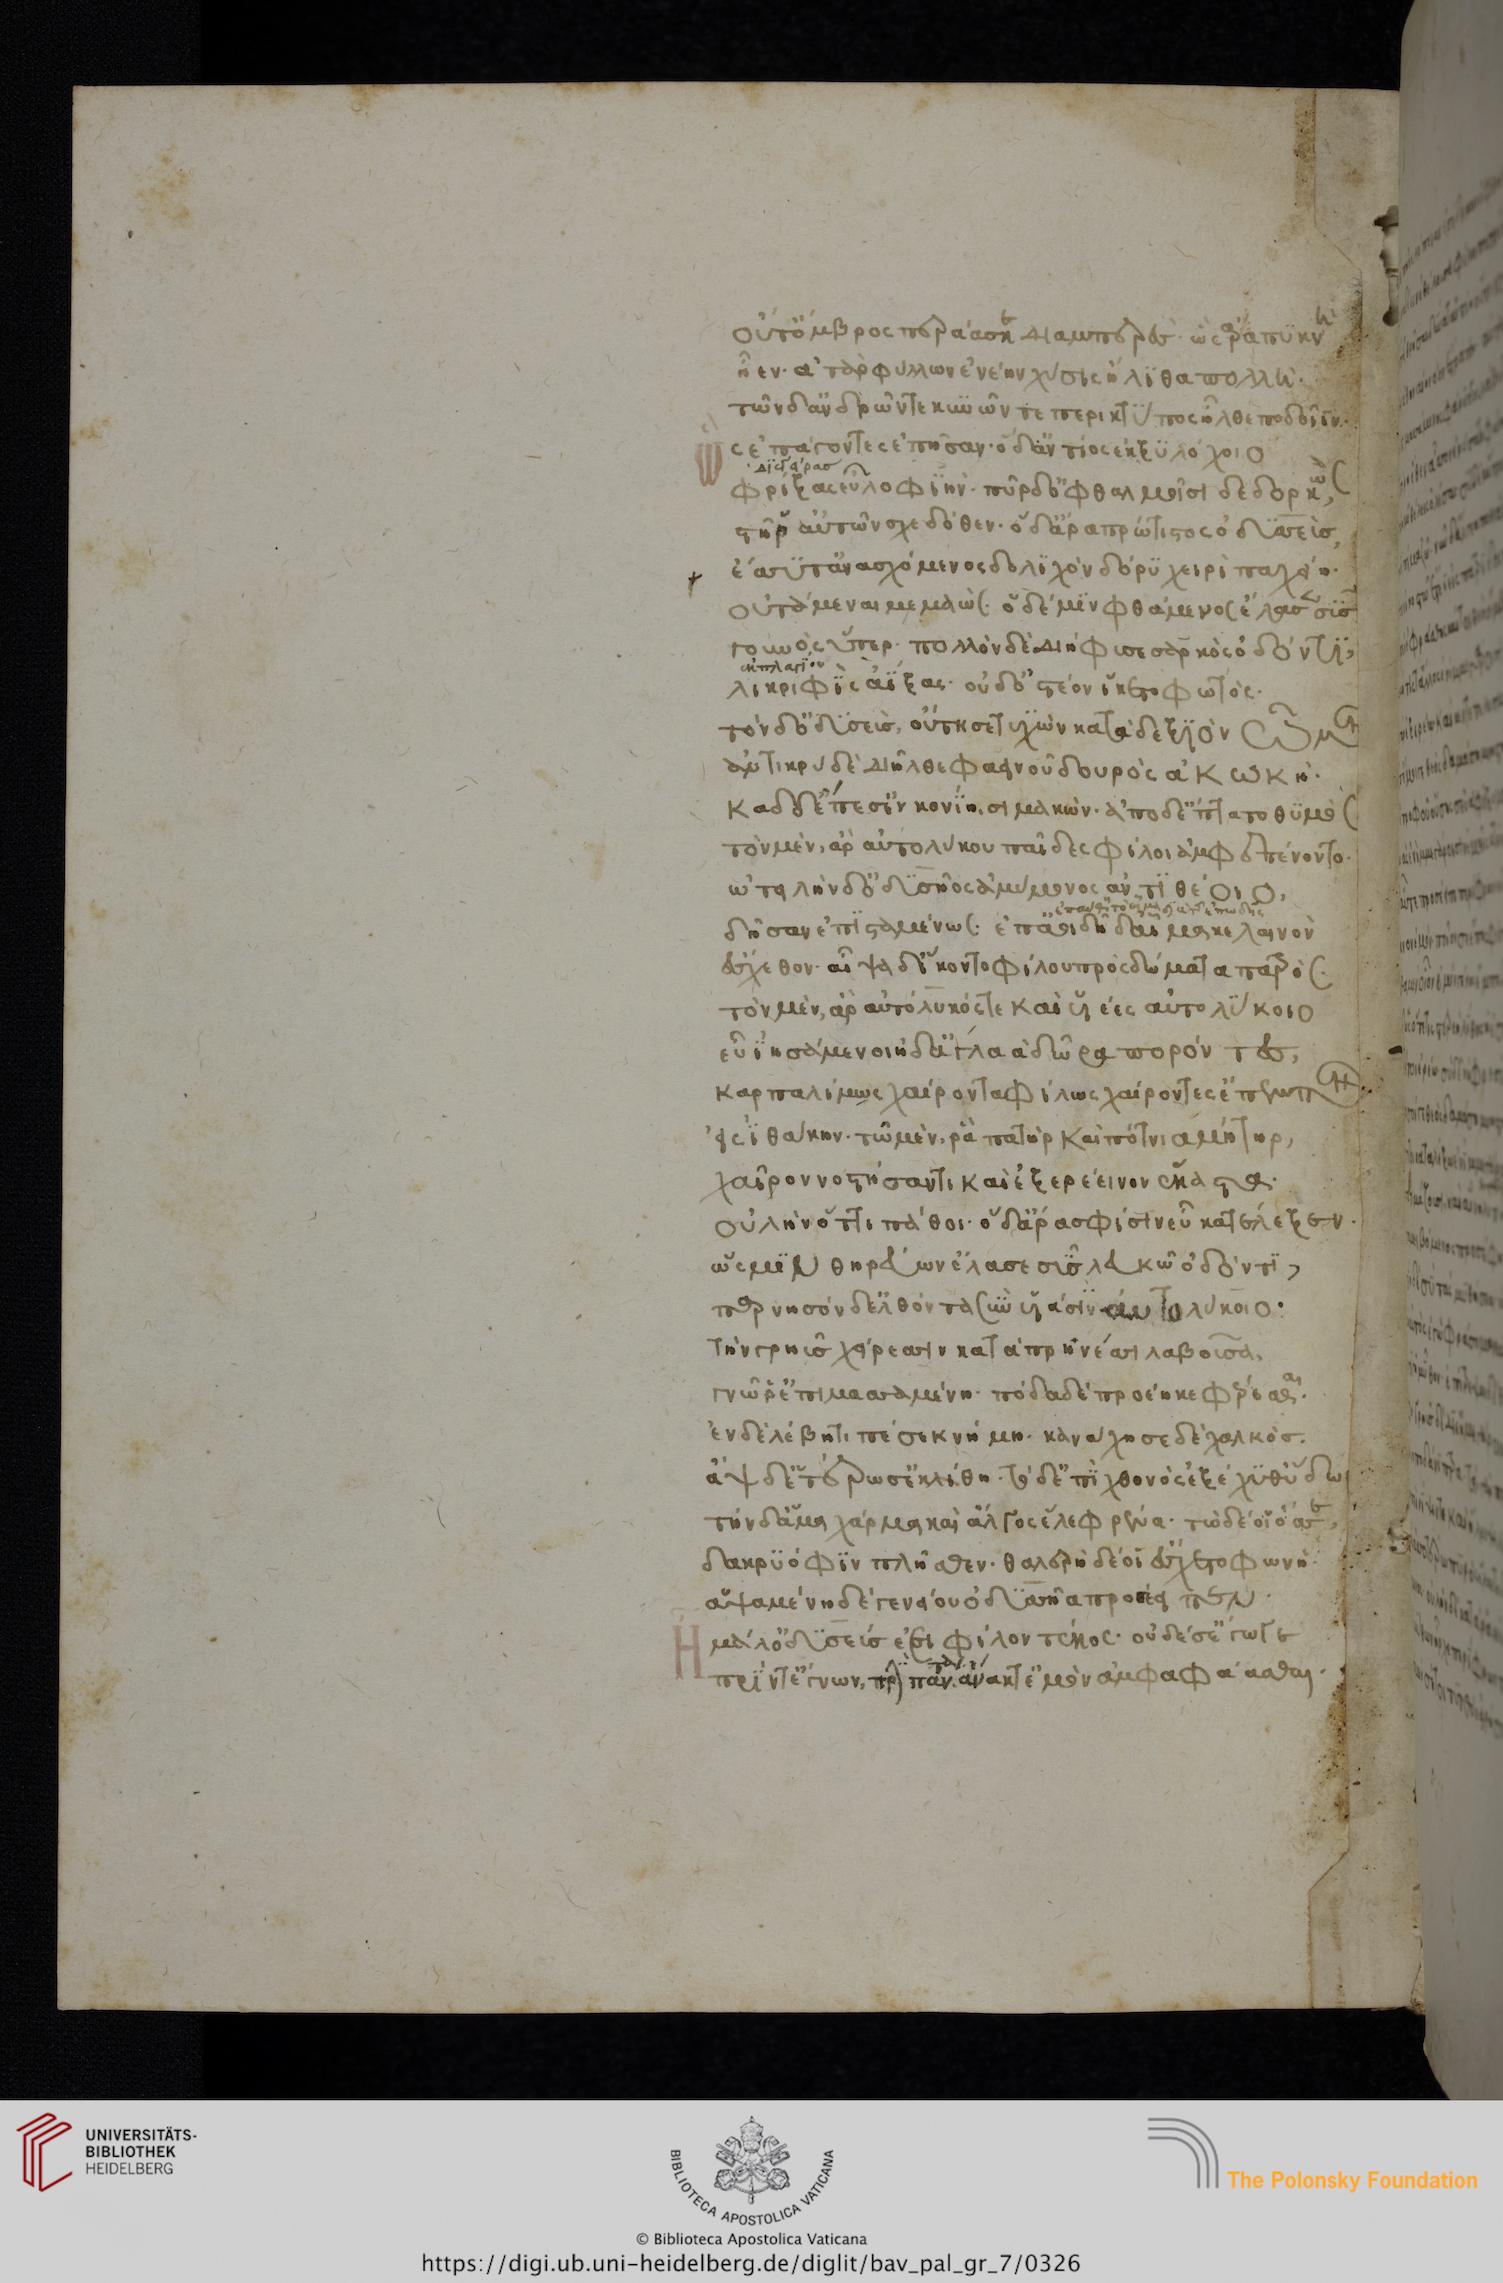 οὔτ' ὄμβρος περάασκε διαμπερές· ὣς ἄρα πυκνὴ
ἦεν· ἀτὰρ φύλλων ἐνέην χύσις ἤλιθα πολλή.
τὸν δ' ἀνδρῶν τε κυνῶν τε περικτύπος ἦλθε ποδοῖιν·
ὡς ἐπάγοντες ἐπῆσαν· ὁ δ' ἀντίος ἐκ ξυλόχοιο
φρίξας εὖ λοφιὴν· πῦρ δ' ὀφθαλμοῖσι δεδορκὼς,
στῆ ῥ' αὐτῶν σχεδόθεν· ὁ δ' ἄρα πρώτιστος ὀδυσσεὺς,
ἔσσυτ' ἀνασχόμενος δολιχὸν δόρυ χειρὶ παχείη·
οὐτάμεναι μεμαώς· ὁ δέ μιν φθάμενος ἔλασε σῦς
γουνὸς ὕπερ· πολλὸν δὲ διήφυσε σαρκὸς ὀδόντι,
λικριφὶς ἀΐξας· οὐδ' ὀστέον ἵκετο φωτός·
τὸν δ' ὀδυσεὺς, οὔτησε τυχὼν κατὰ δεξιὸν ὦμον
ἀντικρὺ δὲ διῆλθε φαεινοῦ δουρὸς ἀκωκή·
καδδ' ἔπεσ' ἐν κονίησι μακών· ἀπὸ δ' ἔπτατο θυμός
τὸν μὲν, ἄρ' αὐτολύκου παῖδες φίλοι ἀμφεπένοντο·
ὠτειλὴν δ' ὀδυσῆος ἀμύμονος ἀντιθέοιο,
δῆσαν ἐπισταμένως· ἐπαοιδῇ δ' αἷμα κελαινὸν
ἔσχεθον· αἶψα δ' ἵκοντο φίλου πρὸς δώματα πατρός·
τὸν μὲν, ἄρ' αὐτόλυκός τε καὶ υἱέες αὐτολύκοιο
εὖ ἰησάμενοι ἠδ' ἀγλαὰ δῶρα πορόντες,
καρπαλίμως χαίροντα φίλως χαίροντες ἔπεμπον
εἰς ἰθάκην· τῷ μέν, ῥα πατὴρ καὶ πότνια μήτηρ,
χαῖρον νοστήσαντι καὶ ἐξερέεινον ἕκαστα·
οὐλὴν ὅττι πάθοι· ὁ δ' ἄρα σφίσιν εὖ κατέλεξεν·
ὥς μιν θηρεύων ἔλασε σῦς λευκῷ ὀδόντι,
παρνησόνδ' ἐλθόντα σὺν υἱάσιν αὐτολύκοιο·
τὴν γρηῢς χείρεσσιν καταπρηνέσσι λαβοῦσα,
γνῶ ῥ' ἐπιμασσαμένη· πόδα δὲ προέηκε φέρεσθαι·
ἐν δὲ λέβητι πέσε κνήμη· κανάχησε δὲ χαλκός·
ἂψ δ' ἑτέρωσ' ἐκλίθη· τὸ δ' ἐπὶ χθονὸς ἐξέχυθ' ὕδωρ
τὴν δ' ἅμα χάρμα καὶ ἄλγος ἕλε φρένα· τὼ δέ οἱ ὄσσε,
δακρυόφιν πλῆσθεν· θαλερὴ δέ οἱ ἔσχετο φωνή·
ἁψαμένη δὲ γενείου ὀδυσσῆα προσέειπεν·
Ἦ μάλ' ὀδυσσεύς ἐσσι φίλον τέκος· οὐδέ σ' ἔγωγε
πρὶν ἔγνων, πρὶν πάντα ἄνακτ' ἐμὸν ἀμφαφάασθαι·
UNIVERSITÄTS-
BIBLIOTHEK
HEIDELBERG
BIBLIOTECA APOSTOLICA VATICANA
The Polonsky Foundation
© Biblioteca Apostolica Vaticana
https://digi.ub.uni-heidelberg.de/diglit/bav_pal_gr_7/0326